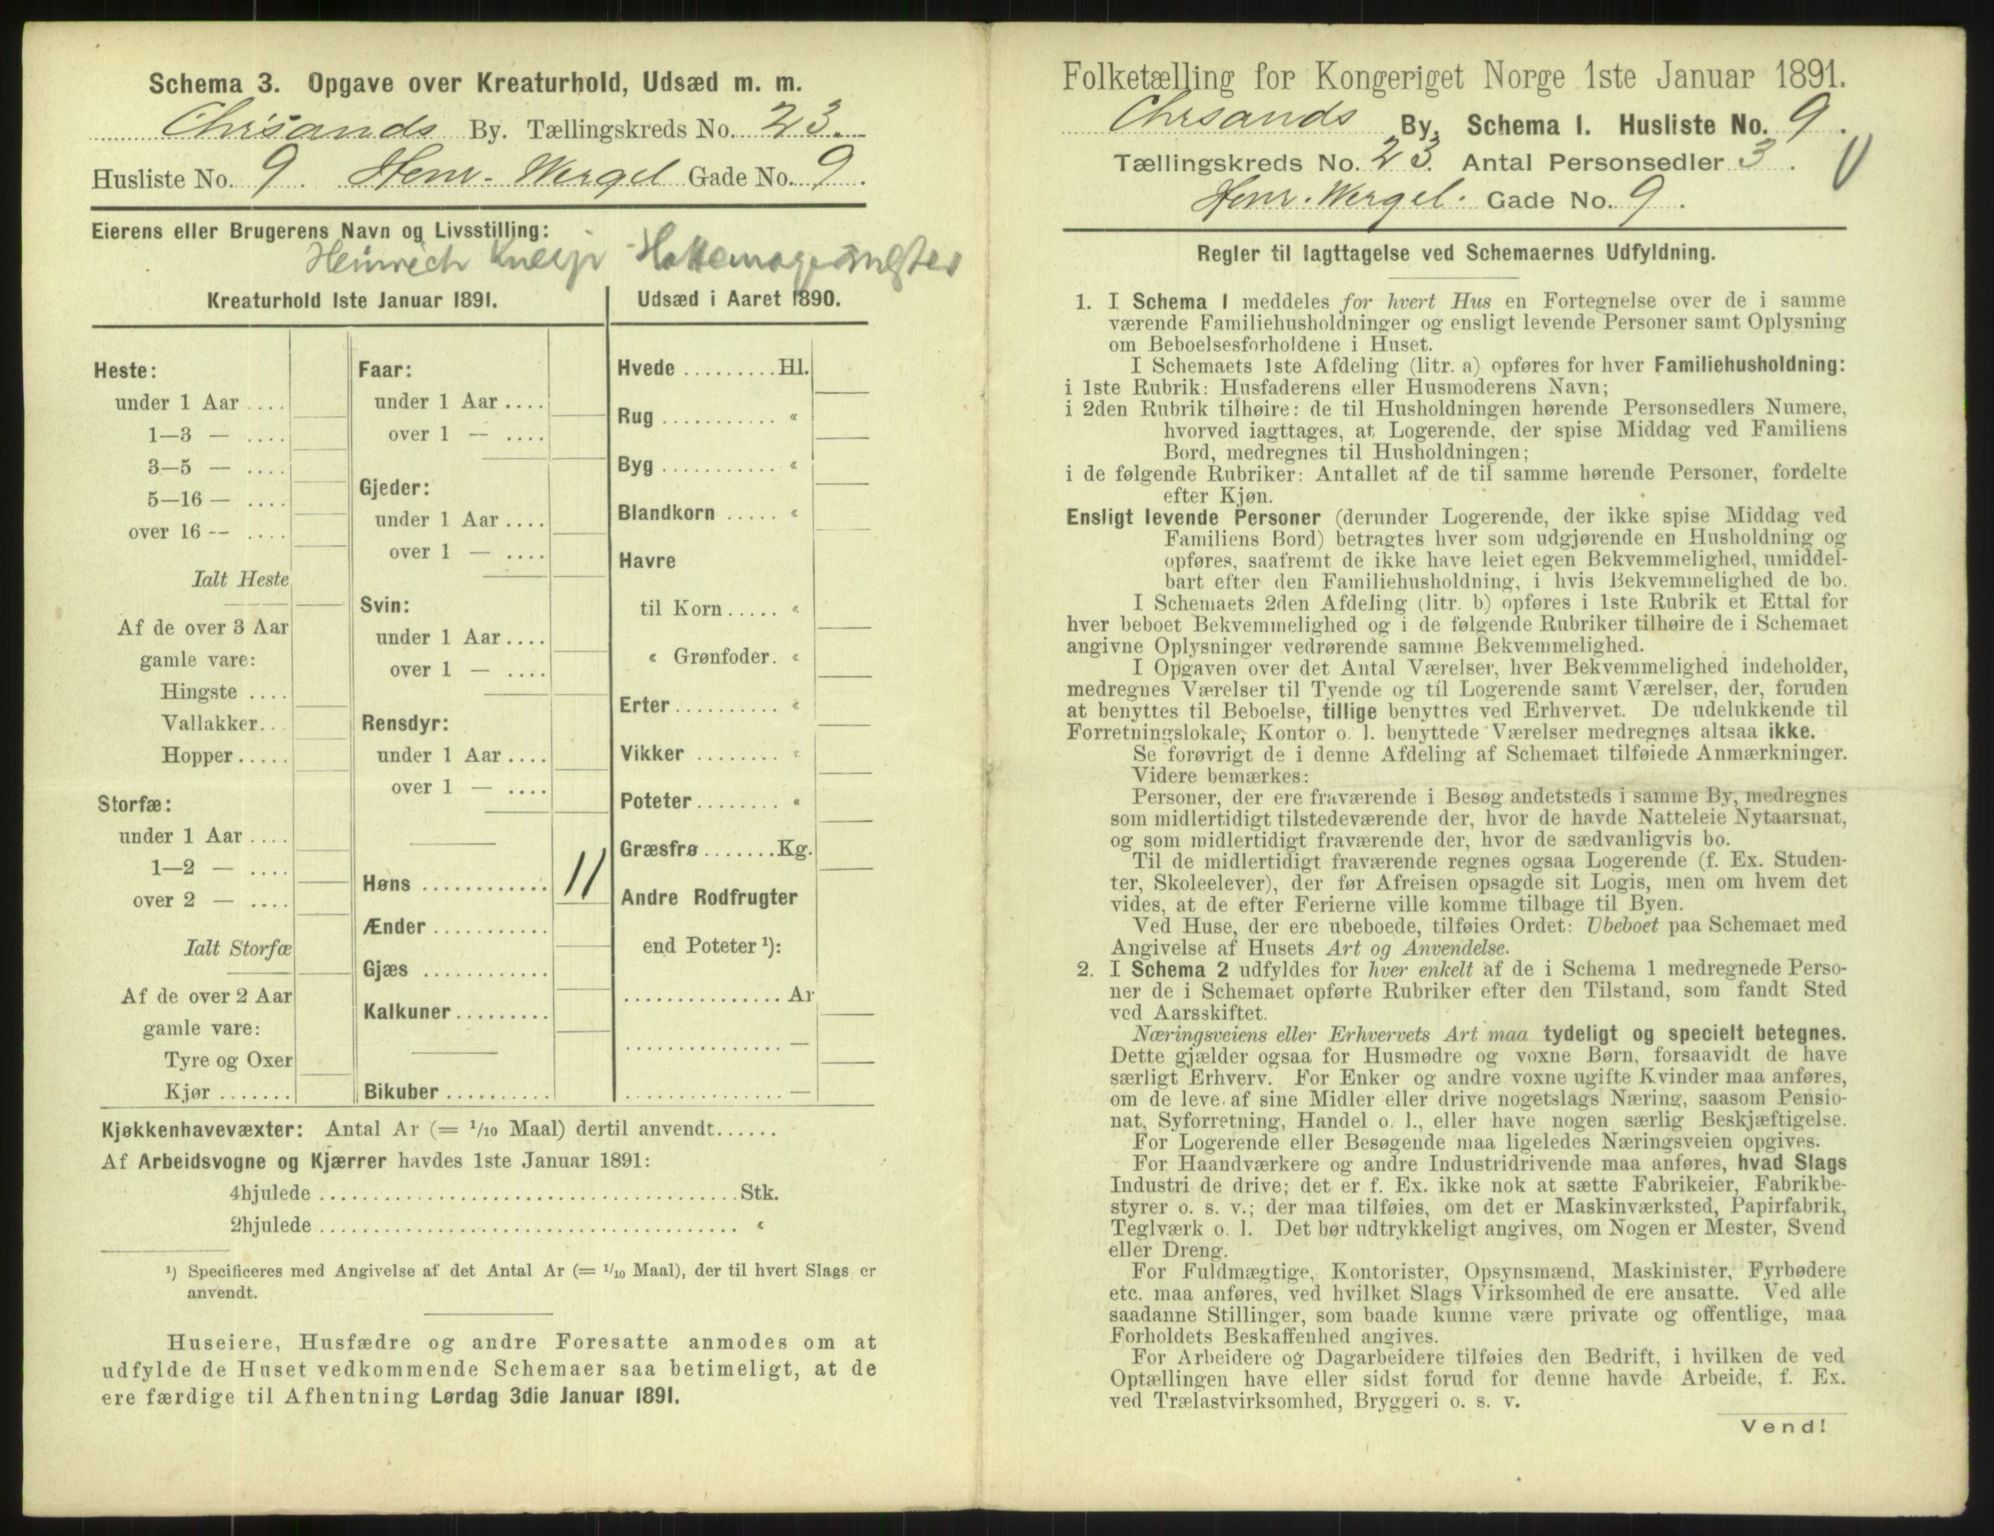 Schema 3. Opgave over Kreaturhold, Udsæd m. m.
Chrsands By. Tællingskreds No. 23.
Husliste No. 9. Henr. Wergel Gade No. 9.
Eierens eller Brugerens Navn og Livsstilling:
Heinrich Kneip
Kreaturhold 1ste Januar 1891.
Heste:
under 1 Aar ....
1—3 — ....
3—5 — ....
5—16 — ....
over 16 -- ....
Ialt Heste
Af de over 3 Aar
gamle vare:
Hingste ....
Vallakker...
Hopper.....
Storfæ:
under 1 Aar ....
1—2 — ....
over 2 — ....
Ialt Storfæ
Af de over 2 Aar
gamle vare:
Tyre og Oxer
Kjør .......
Faar:
under 1 Aar ....
over 1 — ....
Gjeder:
under 1 Aar ....
over 1 — ....
Svin:
under 1 Aar ....
over 1 — ....
Rensdyr:
under 1 Aar ....
over 1 — ....
Høns ............ 11
Ænder ...........
Gjæs ............
Kalkuner .........
Bikuber ..........
Udsæd i Aaret 1890.
Hvede .........Hl.
Rug ........... «
Byg ........... «
Blandkorn ..... «
Havre
til Korn ..... «
« Grønfoder. «
Erter .......... «
Vikker ........ «
Poteter ........ «
Græsfrø .......Kg.
Andre Rodfrugter
end Poteter ¹):
............... Ar
............... —
............... —
Kjøkkenhavevæxter: Antal Ar (= 1/10 Maal) dertil anvendt......
Af Arbeidsvogne og Kjærrer havdes 1ste Januar 1891:
4hjulede ......................................Stk.
2hjulede ...................................... «
¹) Specificeres med Angivelse af det Antal Ar (= 1/10 Maal), der til hvert Slags er
anvendt.
Huseiere, Husfædre og andre Foresatte anmodes om at
udfylde de Huset vedkommende Schemaer saa betimeligt, at de
ere færdige til Afhentning Lørdag 3die Januar 1891.
Folketælling for Kongeriget Norge 1ste Januar 1891.
Chrsands By. Schema 1. Husliste No. 9.
Tællingskreds No. 23. Antal Personsedler 3.
Henr. Wergel. Gade No. 9.
Regler til Iagttagelse ved Schemaernes Udfyldning.
1. I Schema 1 meddeles for hvert Hus en Fortegnelse over de i samme
værende Familiehusholdninger og ensligt levende Personer samt Oplysning
om Beboelsesforholdene i Huset.
I Schemaets 1ste Afdeling (litr. a) opføres for hver Familiehusholdning:
i 1ste Rubrik: Husfaderens eller Husmoderens Navn;
i 2den Rubrik tilhøire: de til Husholdningen hørende Personsedlers Numere,
hvorved iagttages, at Logerende, der spise Middag ved Familiens
Bord, medregnes til Husholdningen;
i de følgende Rubriker: Antallet af de til samme hørende Personer, fordelte
efter Kjøn.
Ensligt levende Personer (derunder Logerende, der ikke spise Middag ved
Familiens Bord) betragtes hver som udgjørende en Husholdning og
opføres, saafremt de ikke have leiet egen Bekvemmelighed, umiddel-
bart efter den Familiehusholdning, i hvis Bekvemmelighed de bo.
I Schemaets 2den Afdeling (litr. b) opføres i 1ste Rubrik et Ettal for
hver beboet Bekvemmelighed og i de følgende Rubriker tilhøire de i Schemaet
angivne Oplysninger vedrørende samme Bekvemmelighed.
I Opgaven over det Antal Værelser, hver Bekvemmelighed indeholder,
medregnes Værelser til Tyende og til Logerende samt Værelser, der, foruden
at benyttes til Beboelse, tillige benyttes ved Erhvervet. De udelukkende til
Forretningslokale, Kontor o. l. benyttede Værelser medregnes altsaa ikke.
Se forøvrigt de i denne Afdeling af Schemaet tilføiede Anmærkninger.
Videre bemærkes:
Personer, der ere fraværende i Besøg andetsteds i samme By, medregnes
som midlertidigt tilstedeværende der, hvor de havde Natteleie Nytaarsnat,
og som midlertidigt fraværende der, hvor de sædvanligvis bo.
Til de midlertidigt fraværende regnes ogsaa Logerende (f. Ex. Studen-
ter, Skoleelever), der før Afreisen opsagde sit Logis, men om hvem det
vides, at de efter Ferierne ville komme tilbage til Byen.
Ved Huse, der ere ubeboede, tilføies Ordet: Ubeboet paa Schemaet med
Angivelse af Husets Art og Anvendelse.
2. I Schema 2 udfyldes for hver enkelt af de i Schema 1 medregnede Perso-
ner de i Schemaet opførte Rubriker efter den Tilstand, som fandt Sted
ved Aarsskiftet.
Næringsveiens eller Erhvervets Art maa tydeligt og specielt betegnes.
Dette gjælder ogsaa for Husmødre og voxne Børn, forsaavidt de have
særligt Erhverv. For Enker og andre voxne ugifte Kvinder maa anføres,
om de leve af sine Midler eller drive nogetslags Næring, saasom Pensio-
nat, Syforretning, Handel o. l., eller have nogen særlig Beskjæftigelse.
For Logerende eller Besøgende maa ligeledes Næringsveien opgives.
For Haandværkere og andre Industridrivende maa anføres, hvad Slags
Industri de drive; det er f. Ex. ikke nok at sætte Fabrikeier, Fabrikbe-
styrer o. s. v.; der maa tilføies, om det er Maskinværksted, Papirfabrik,
Teglværk o. l. Det bør udtrykkeligt angives, om Nogen er Mester, Svend
eller Dreng.
For Fuldmægtige, Kontorister, Opsynsmænd, Maskinister, Fyrbødere
etc. maa anføres, ved hvilket Slags Virksomhed de ere ansatte. Ved alle
saadanne Stillinger, som baade kunne være private og offentlige, maa
Forholdets Beskaffenhed angives.
For Arbeidere og Dagarbeidere tilføies den Bedrift, i hvilken de ved
Optællingen have eller sidst forud for denne havde Arbeide, f. Ex.
ved Trælastvirksomhed, Bryggeri o. s. v.
Vend!